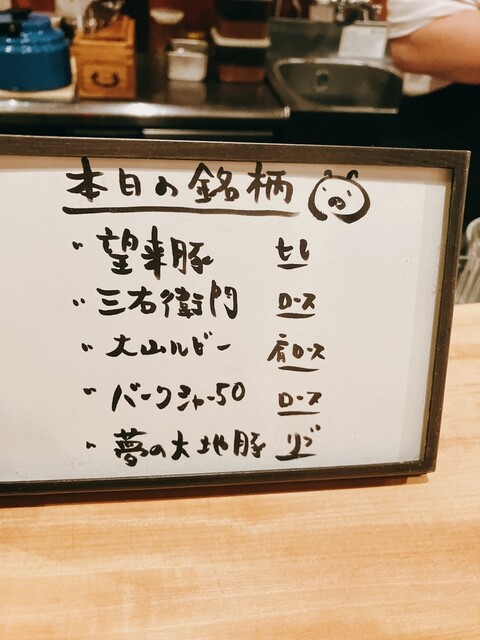 本日の銘柄
〃 望来豚 ヒレ
〃 三右衛門 ロース
〃 大山ルビー 肩ロース
〃 バークシャー50 ロース
〃 夢の大地豚 リブ